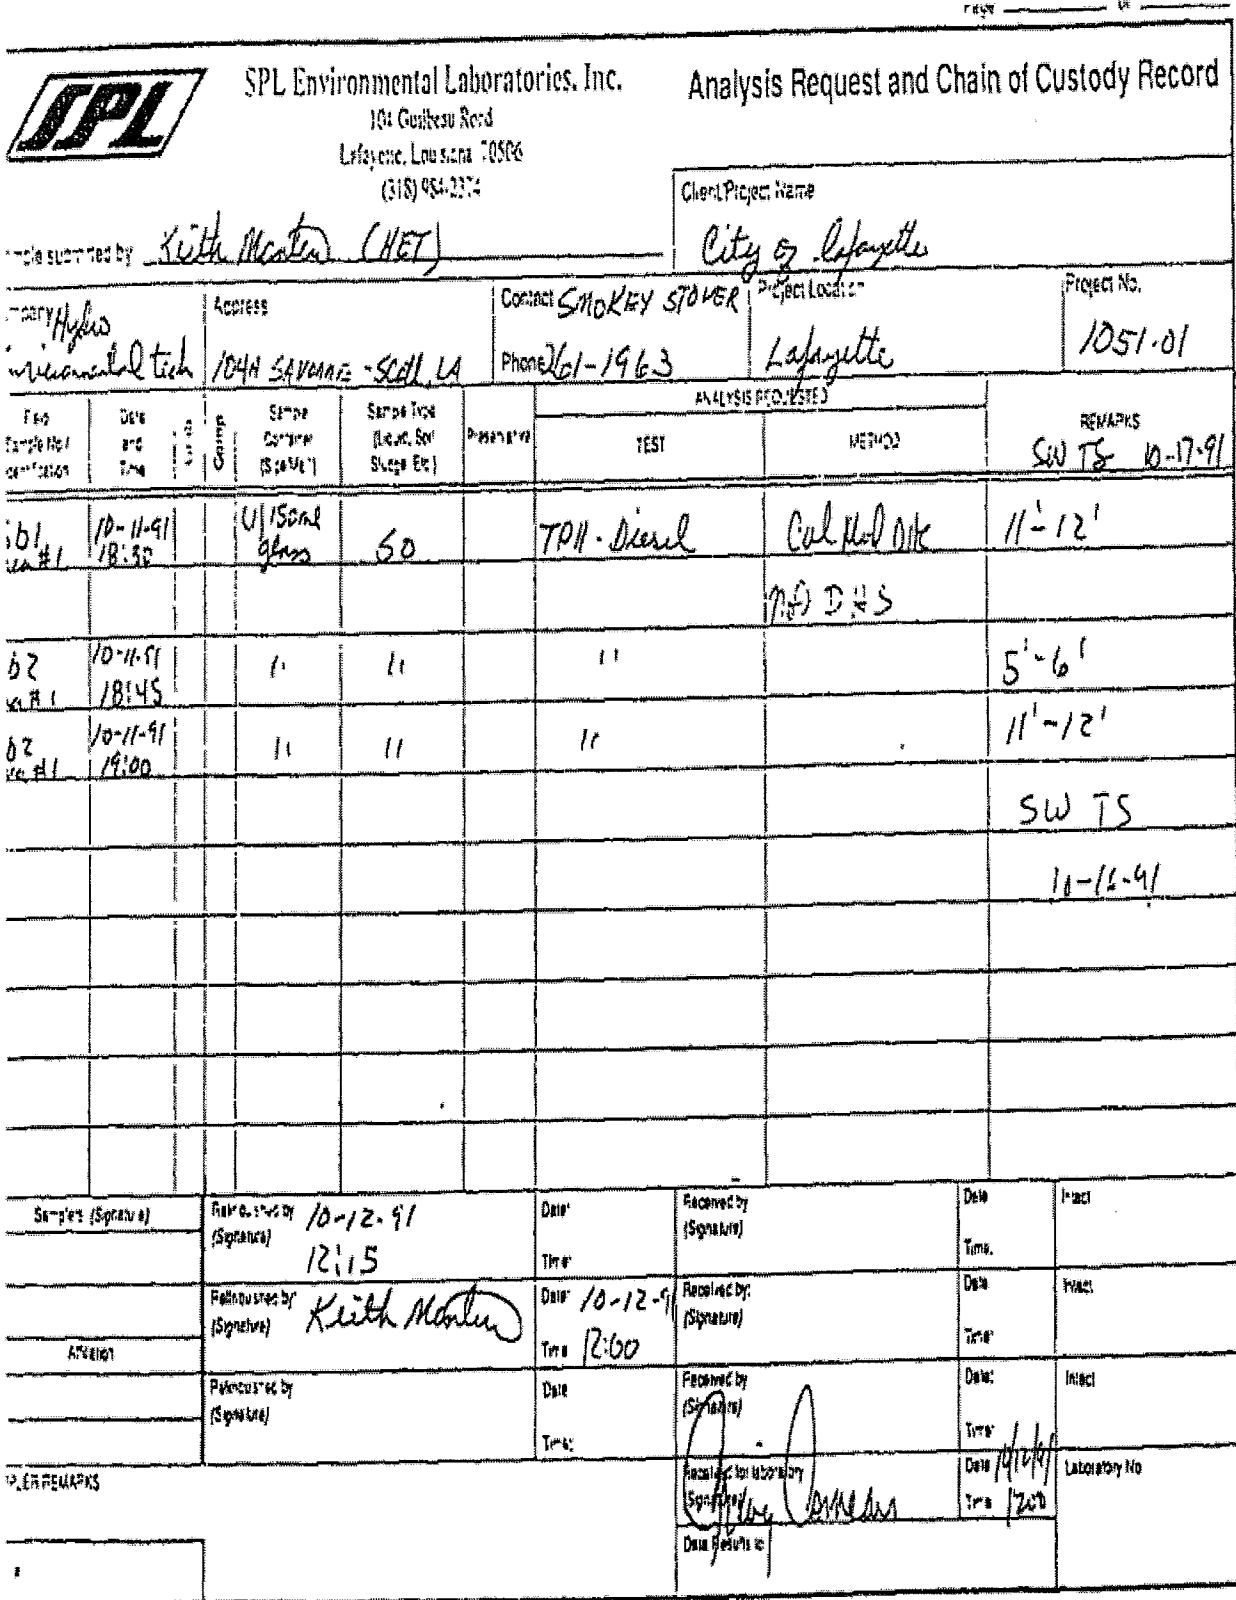 Page
SPL
SPL Environmental Laboratories, Inc.
104 Guilbeau Road
Lafayette, Louisiana 70506
(318) 984-2374
Analysis Request and Chain of Custody Record
Client/Project Name
City of Lafayette
submitted by Keith Martin (HET)
Hydro
Address
104H SAVONNE - Scott, LA
Contact SMOKEY STOVER
Phone 261-1963
Project Location
Lafayette
Project No.
1051.01
Date and Time
Comp
Sample Container (Size/Mat'l)
Sample Type (Liquid, Soil Sludge, Etc.)
Preservative
ANALYSIS REQUESTED
TEST
METHOD
REMARKS
SW TS 10-17-91
10-11-91 18:30
glass
SO
TPH - Diesel
11'-12'
DHS
b2 #1
10-11-91 18:45
"
"
"
5'-6'
b2 #1
10-11-91 19:00
"
"
"
11'-12'
SW TS
Samplers (Signature)
Relinquished by (Signature)
10-12-91
12:15
Date:
Time:
Received by (Signature)
Date
Time.
Intact
Relinquished by: (Signature)
Keith Martin
Date: 10-12-91
Time 12:00
Received by: (Signature)
Date
Time:
Intact
Affiliation
Relinquished by (Signature)
Date
Time:
Received by (Signature)
Date:
Time:
Intact
REMARKS
Received for laboratory (Signature)
Date 10/12/91
Time 1200
Laboratory No
Data Results to